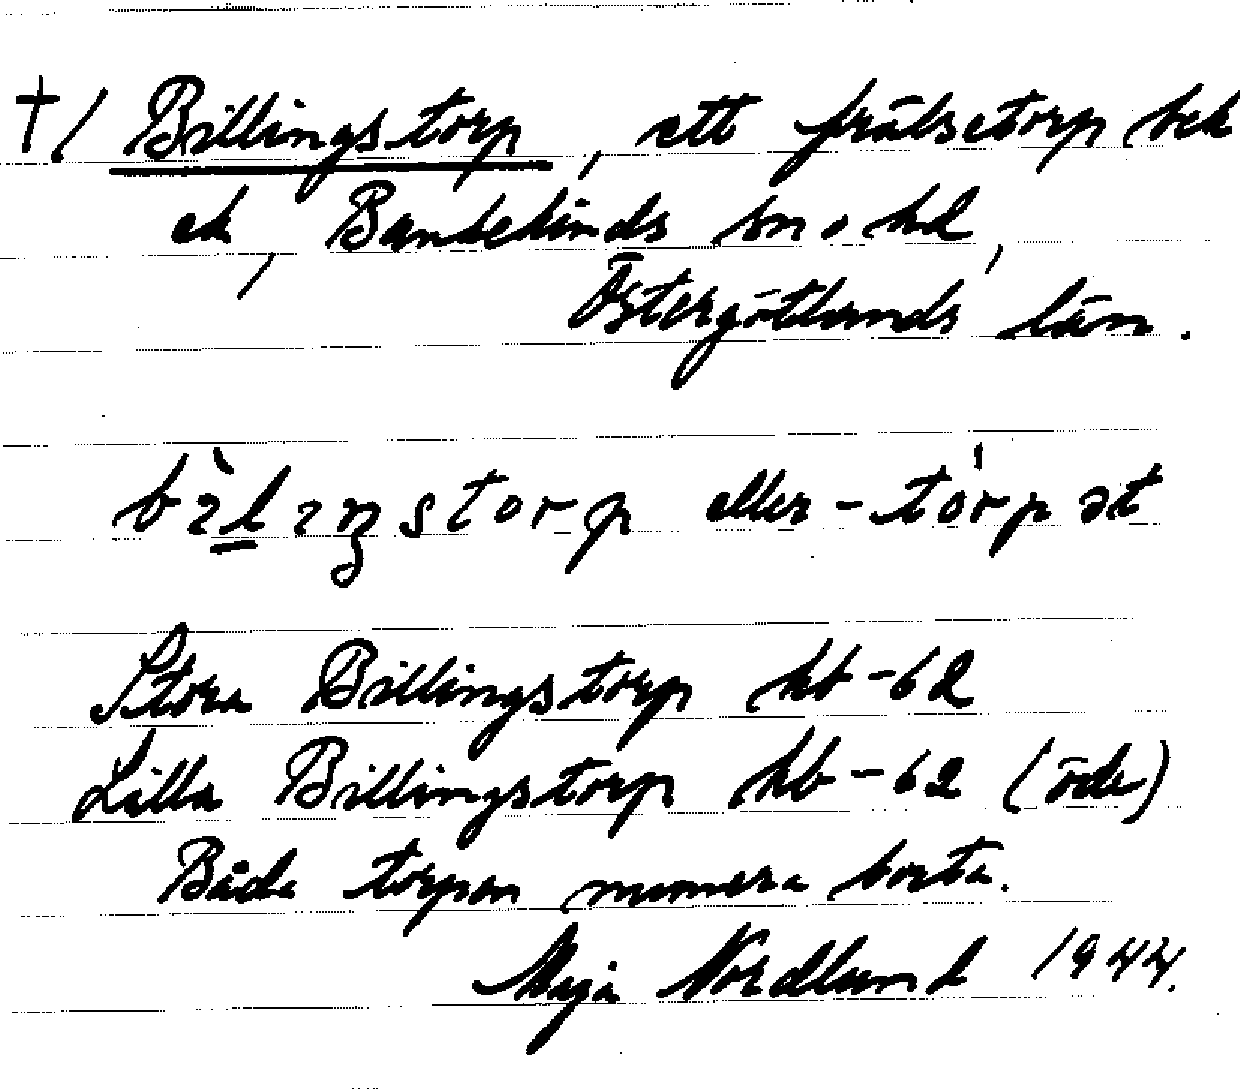 †/ Billingstorp, ett frälsetorp bek
ek, Bankekinds sn o hd,
Östergötlands län.
bìlıŋstorp eller -tórp ət
Stora Billingstorp kb -62
Lilla Billingstorp kb -62 (öde)
Båda torpen numera borta.
Maja Nordlund 1944.